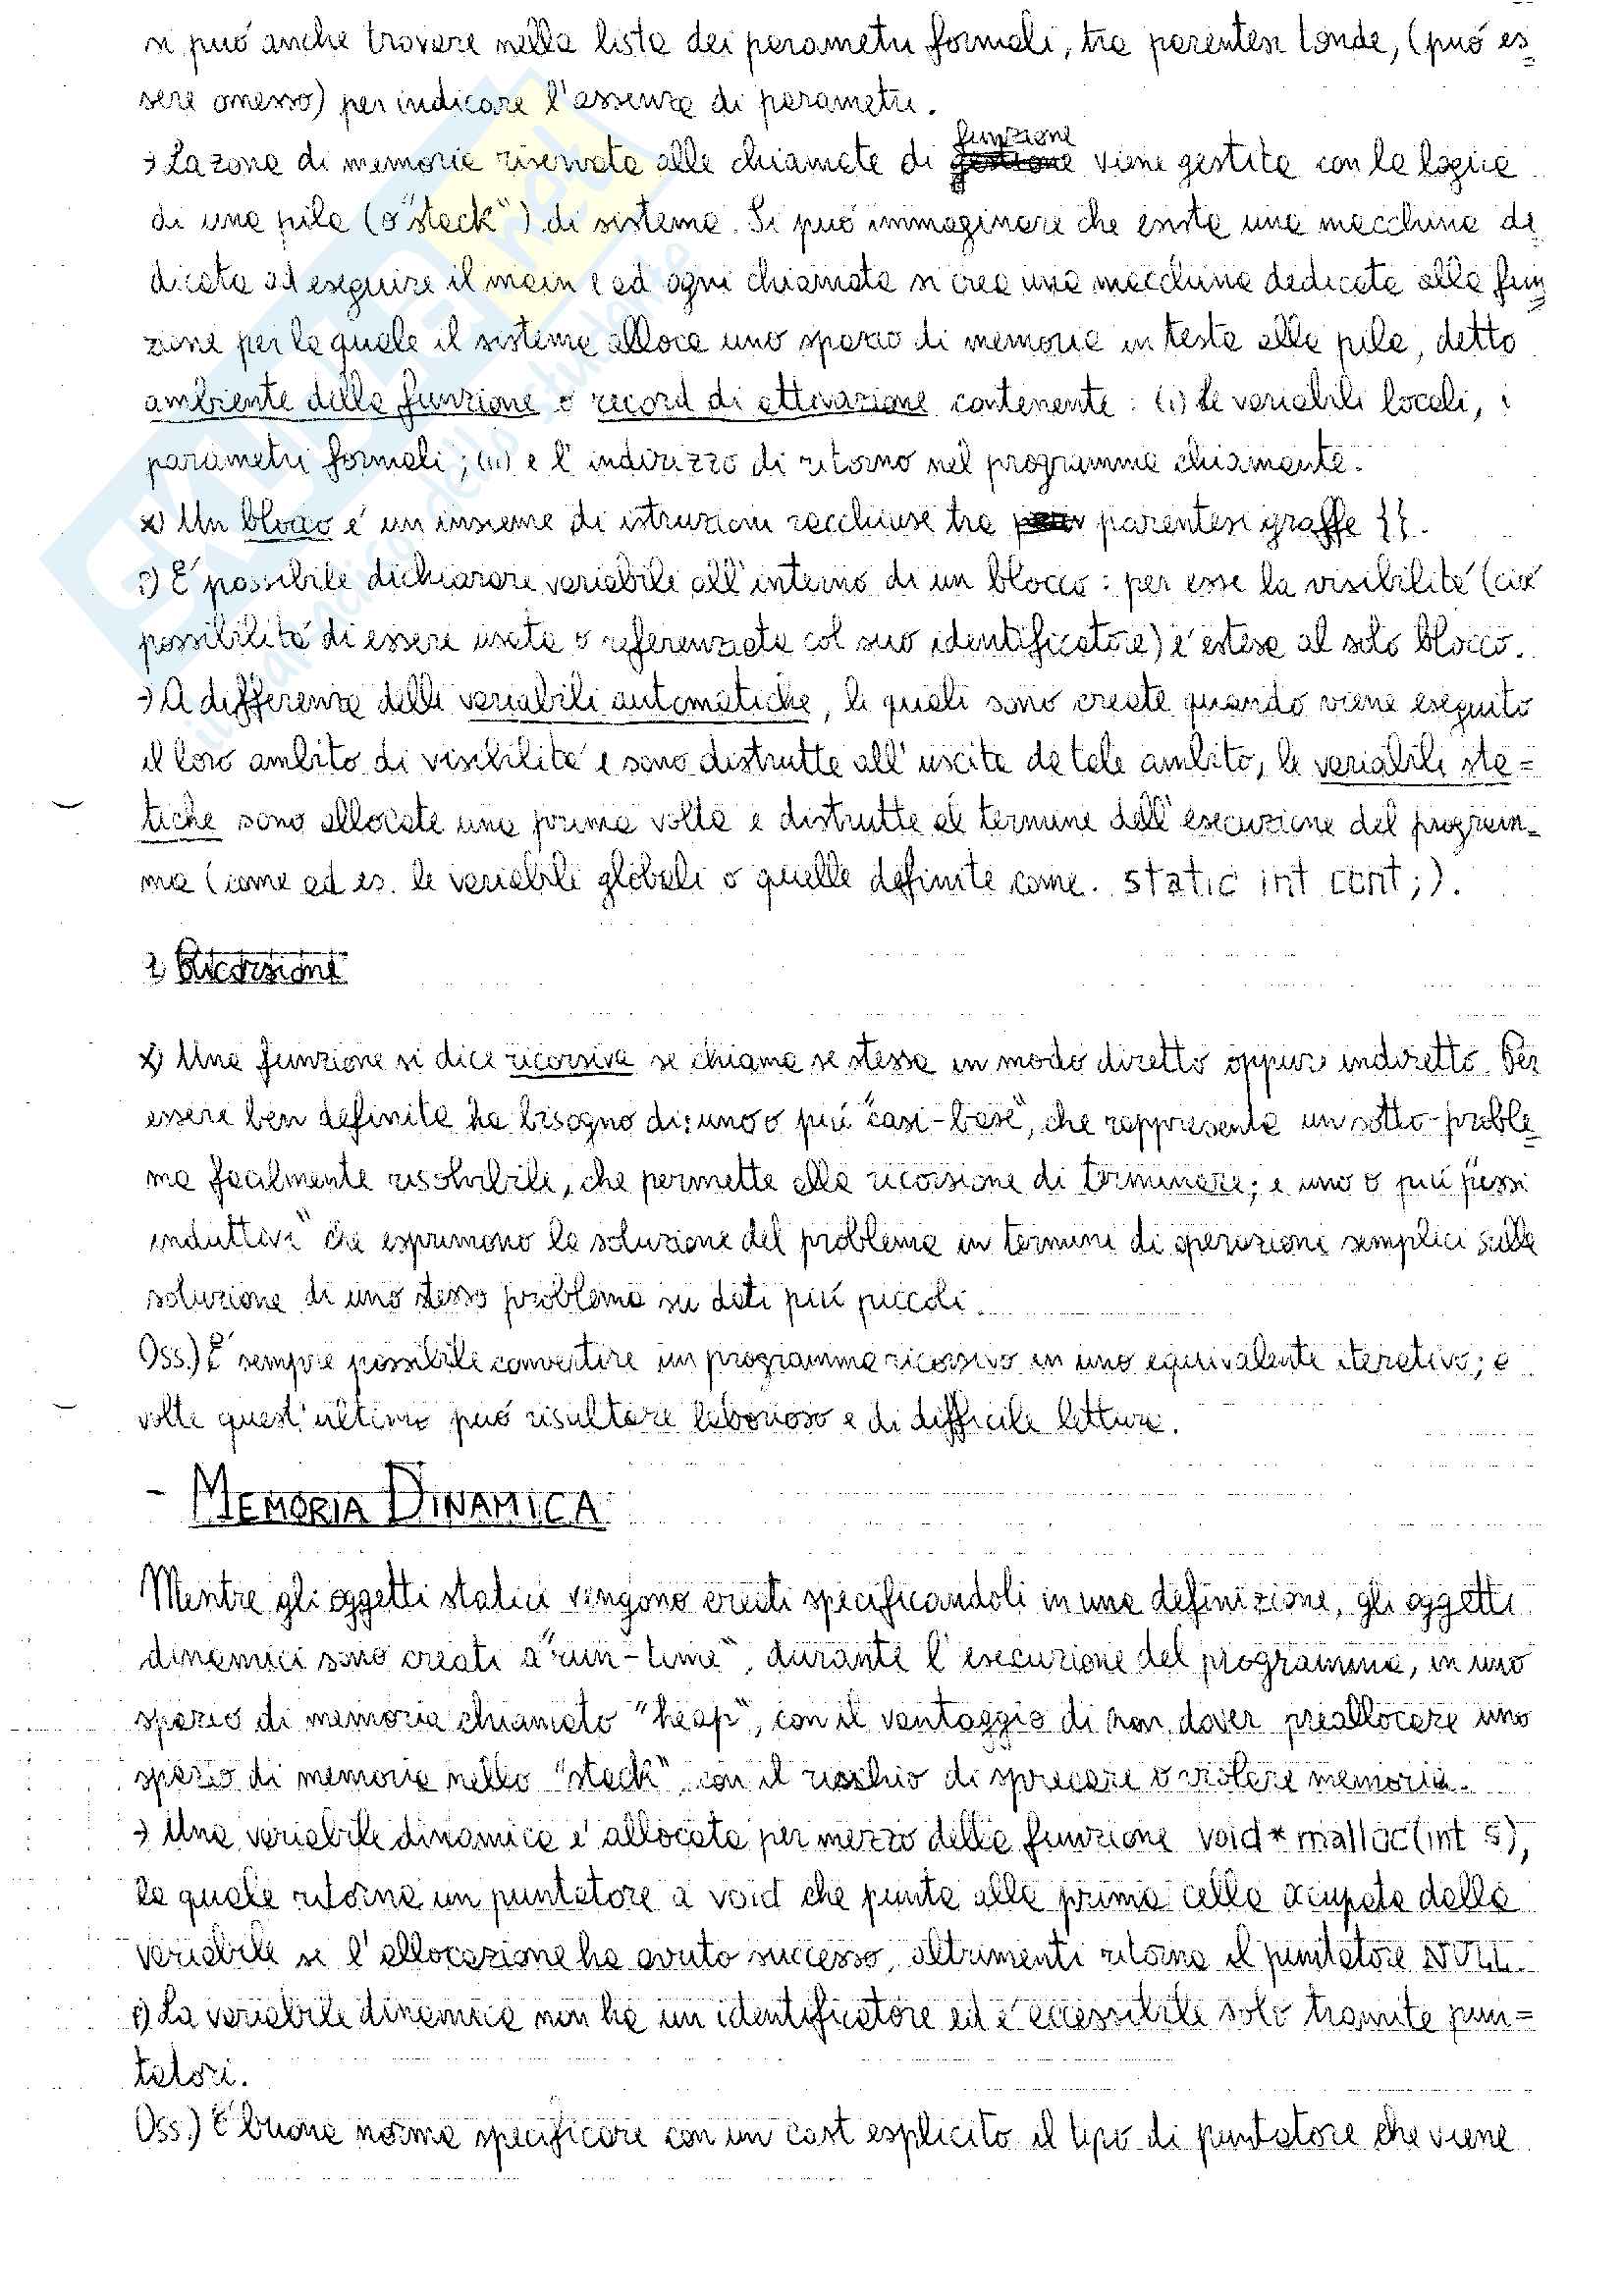 si può anche trovare nella lista dei parametri formali, tra parentesi tonde, (può es
sere omesso) per indicare l'assenza di parametri.
funzione
→ La zona di memoria riservata alle chiamate di viene gestita con la logica
di una pila (o "stack") di sistema. Si può immaginare che esista una macchina de
dicata ad eseguire il main e ad ogni chiamata si crea una macchina dedicata alla fun
zione per la quale il sistema alloca uno spazio di memoria in testa alla pila, detto
ambiente della funzione o record di attivazione contenente: (i) le variabili locali, i
parametri formali; (ii) e l'indirizzo di ritorno nel programma chiamante.
x) Un blocco è un insieme di istruzioni racchiuse tra parentesi graffe {}.
È possibile dichiarare variabile all'interno di un blocco: per esse la visibilità (cioè
possibilità di essere usata o referenziata col suo identificatore) è estesa al solo blocco.
→ A differenza delle variabili automatiche, le quali sono create quando viene eseguito
il loro ambito di visibilità e sono distrutte all'uscita da tale ambito, le variabili sta=
tiche sono allocate una prima volta e distrutte al termine dell'esecuzione del program=
ma (come ad es. le variabili globali o quelle definite come. static int cont;).
Ricorsione
x) Una funzione si dice ricorsiva se chiama se stessa in modo diretto oppure indiretto. Per
essere ben definita ha bisogno di: uno o più "casi-base", che rappresenta un sotto-proble=
ma facilmente risolvibile, che permette alla ricorsione di terminare; e uno o più "passi
induttivi" che esprimono la soluzione del problema in termini di operazioni semplici sulla
soluzione di uno stesso problema su dati più piccoli.
Oss.) È sempre possibile convertire un programma ricorsivo in uno equivalente iterativo; a
volte quest'ultimo può risultare laborioso e di difficile lettura.
- MEMORIA DINAMICA
Mentre gli oggetti statici vengono creati specificandoli in una definizione, gli oggetti
dinamici sono creati a "run-time", durante l'esecuzione del programma, in uno
spazio di memoria chiamato "heap", con il vantaggio di non dover preallocare uno
spazio di memoria nello "stack", con il rischio di sprecare o violare memoria.
→ Una variabile dinamica è allocata per mezzo della funzione void* malloc(int s),
la quale ritorna un puntatore a void che punta alla prima cella occupata dalla
variabile se l'allocazione ha avuto successo, altrimenti ritorna il puntatore NULL.
La variabile dinamica non ha un identificatore ed è accessibile solo tramite pun=
tatori.
Oss.) È buona norma specificare con un cast esplicito il tipo di puntatore che viene